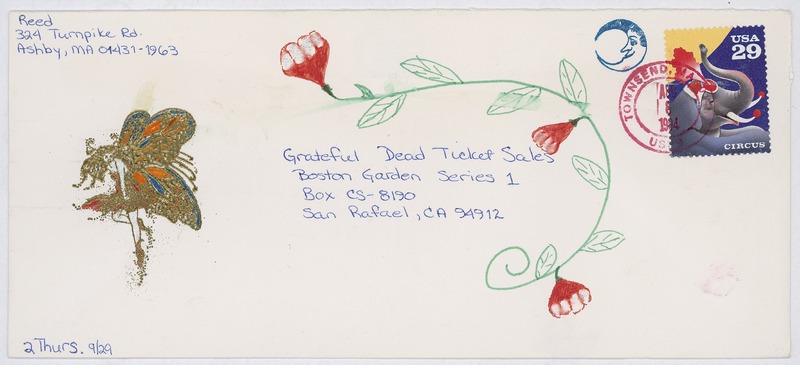 Reed
324 Turnpike Rd.
Ashby, MA 01431-1963
USA
29
CIRCUS
TOWNSEND, MA
1994
Grateful Dead Ticket Sales
Boston Garden Series 1
Box CS-8190
San Rafael, CA 94912
2 Thurs. 9/29